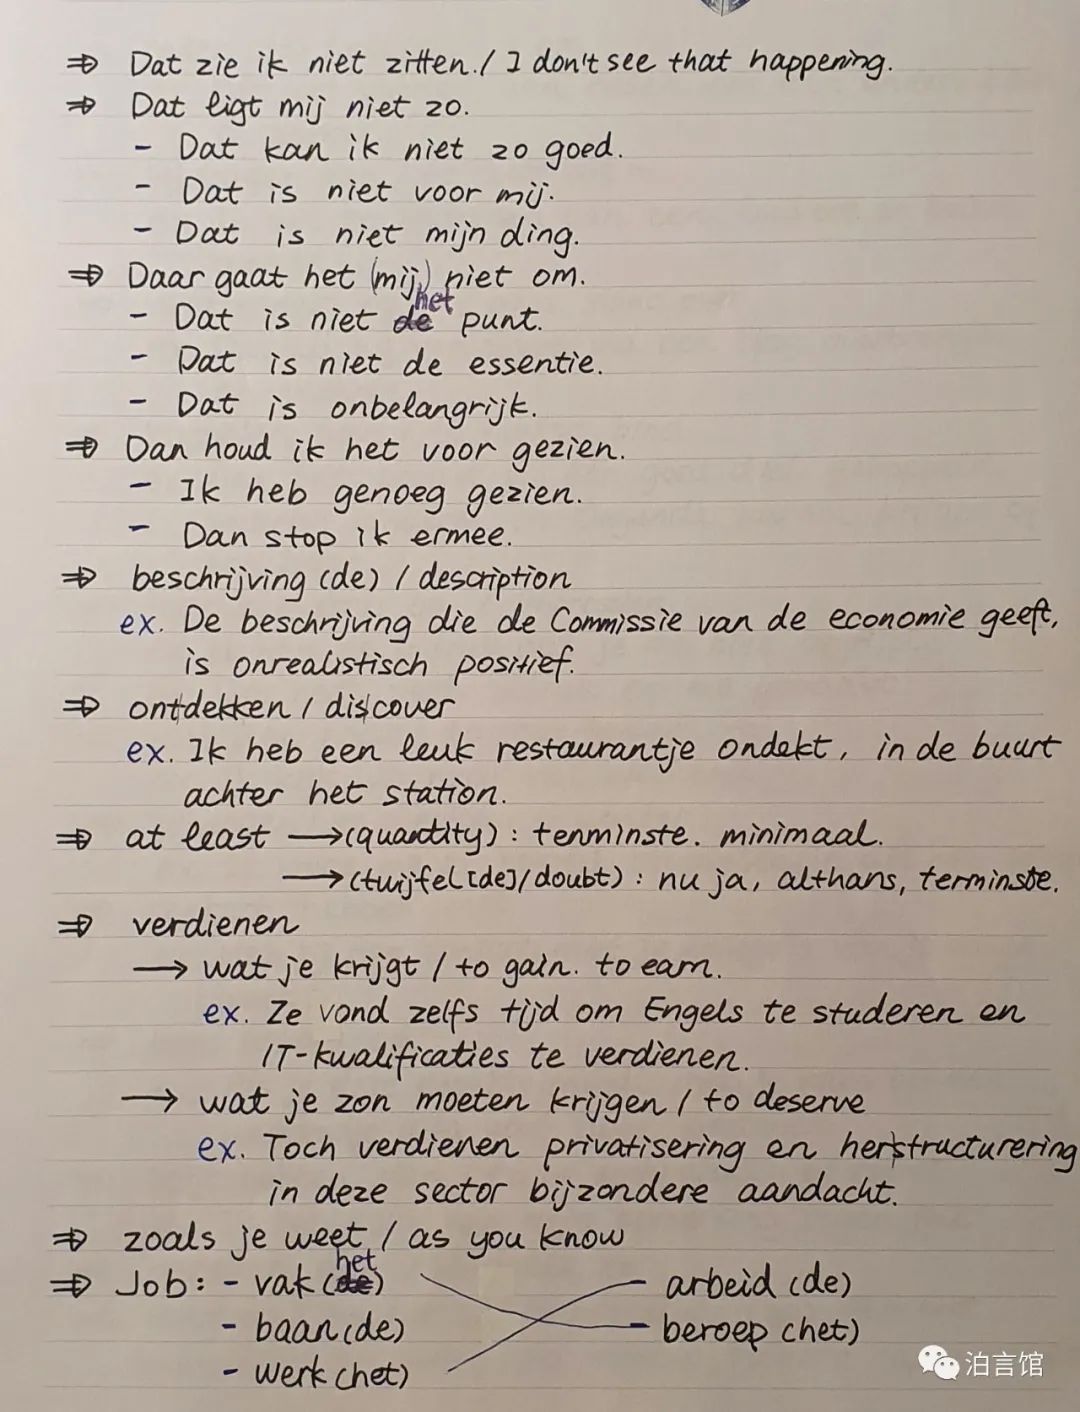 ⇒ Dat zie ik niet zitten. / I don't see that happening.
⇒ Dat ligt mij niet zo.
- Dat kan ik niet zo goed.
- Dat is niet voor mij.
- Dat is niet mijn ding.
⇒ Daar gaat het (mij) niet om.
- Dat is niet het punt.
- Dat is niet de essentie.
- Dat is onbelangrijk.
⇒ Dan houd ik het voor gezien.
- Ik heb genoeg gezien.
- Dan stop ik ermee.
⇒ beschrijving (de) / description
ex. De beschrijving die de Commissie van de economie geeft,
is onrealistisch positief.
⇒ ont|dekken / dis|cover
ex. Ik heb een leuk restaurantje ondekt, in de buurt
achter het station.
⇒ at least → (quantity) : tenminste. minimaal.
→ (twijfel [de] / doubt) : nu ja, althans, terminste.
⇒ verdienen
→ wat je krijgt / to gain. to earn.
ex. Ze vond zelfs tijd om Engels te studeren en
IT-kwalificaties te verdienen.
→ wat je zon moeten krijgen / to deserve
ex. Toch verdienen privatisering en her|structurering
in deze sector bijzondere aandacht.
⇒ zoals je weet / as you know
⇒ Job: - vak (het) - arbeid (de)
- baan (de) - beroep (het)
- werk (het)
泊言馆